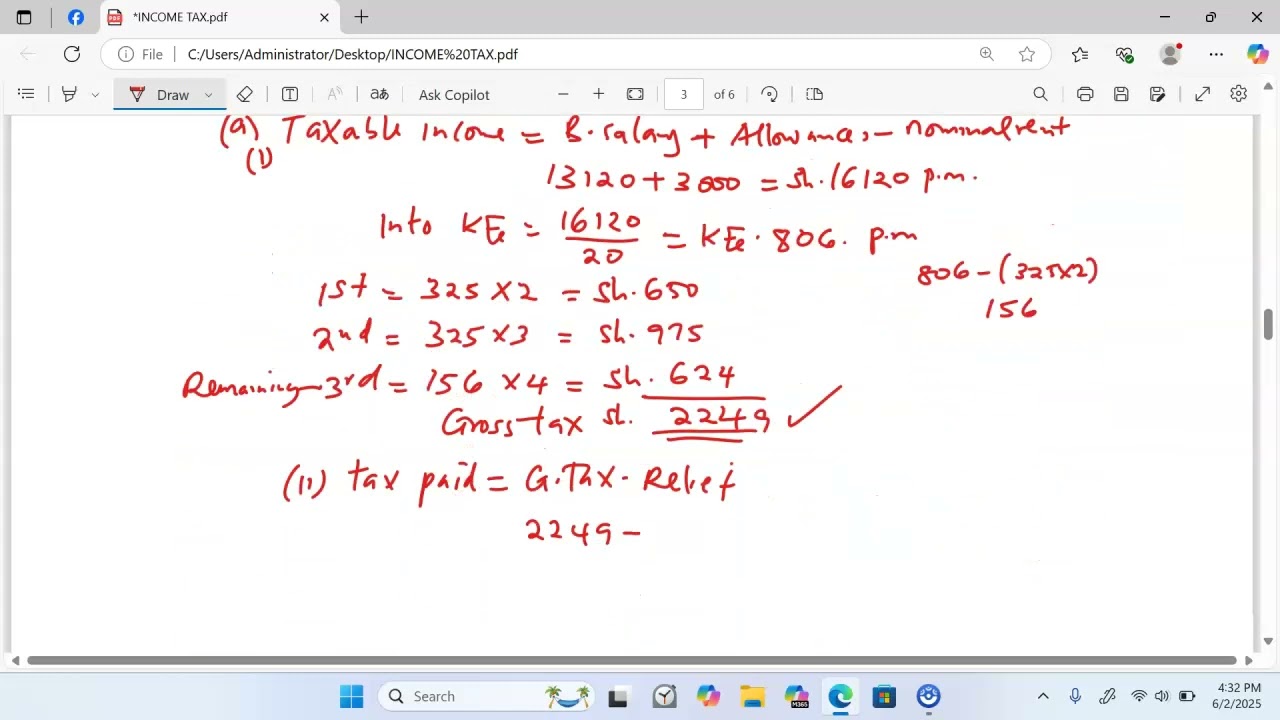 *INCOME TAX.pdf
File C:/Users/Administrator/Desktop/INCOME%20TAX.pdf
Draw Ask Copilot 3 of 6
(a) Taxable income = B.salary + Allowances - nominal rent
(i)
13120 + 3000 = sh.16120 p.m.
Into K£ = 16120/20 = K£. 806. p.m
806 - (325x2)
1st = 325 x 2 = sh.650
156
2nd = 325x3 = sh. 975
Remaining 3rd = 156 x 4 = sh. 624
Gross tax sh. 2249 ✓
(ii) tax paid = G.Tax - Relief
2249 -
Search
4:32 PM
6/2/2025